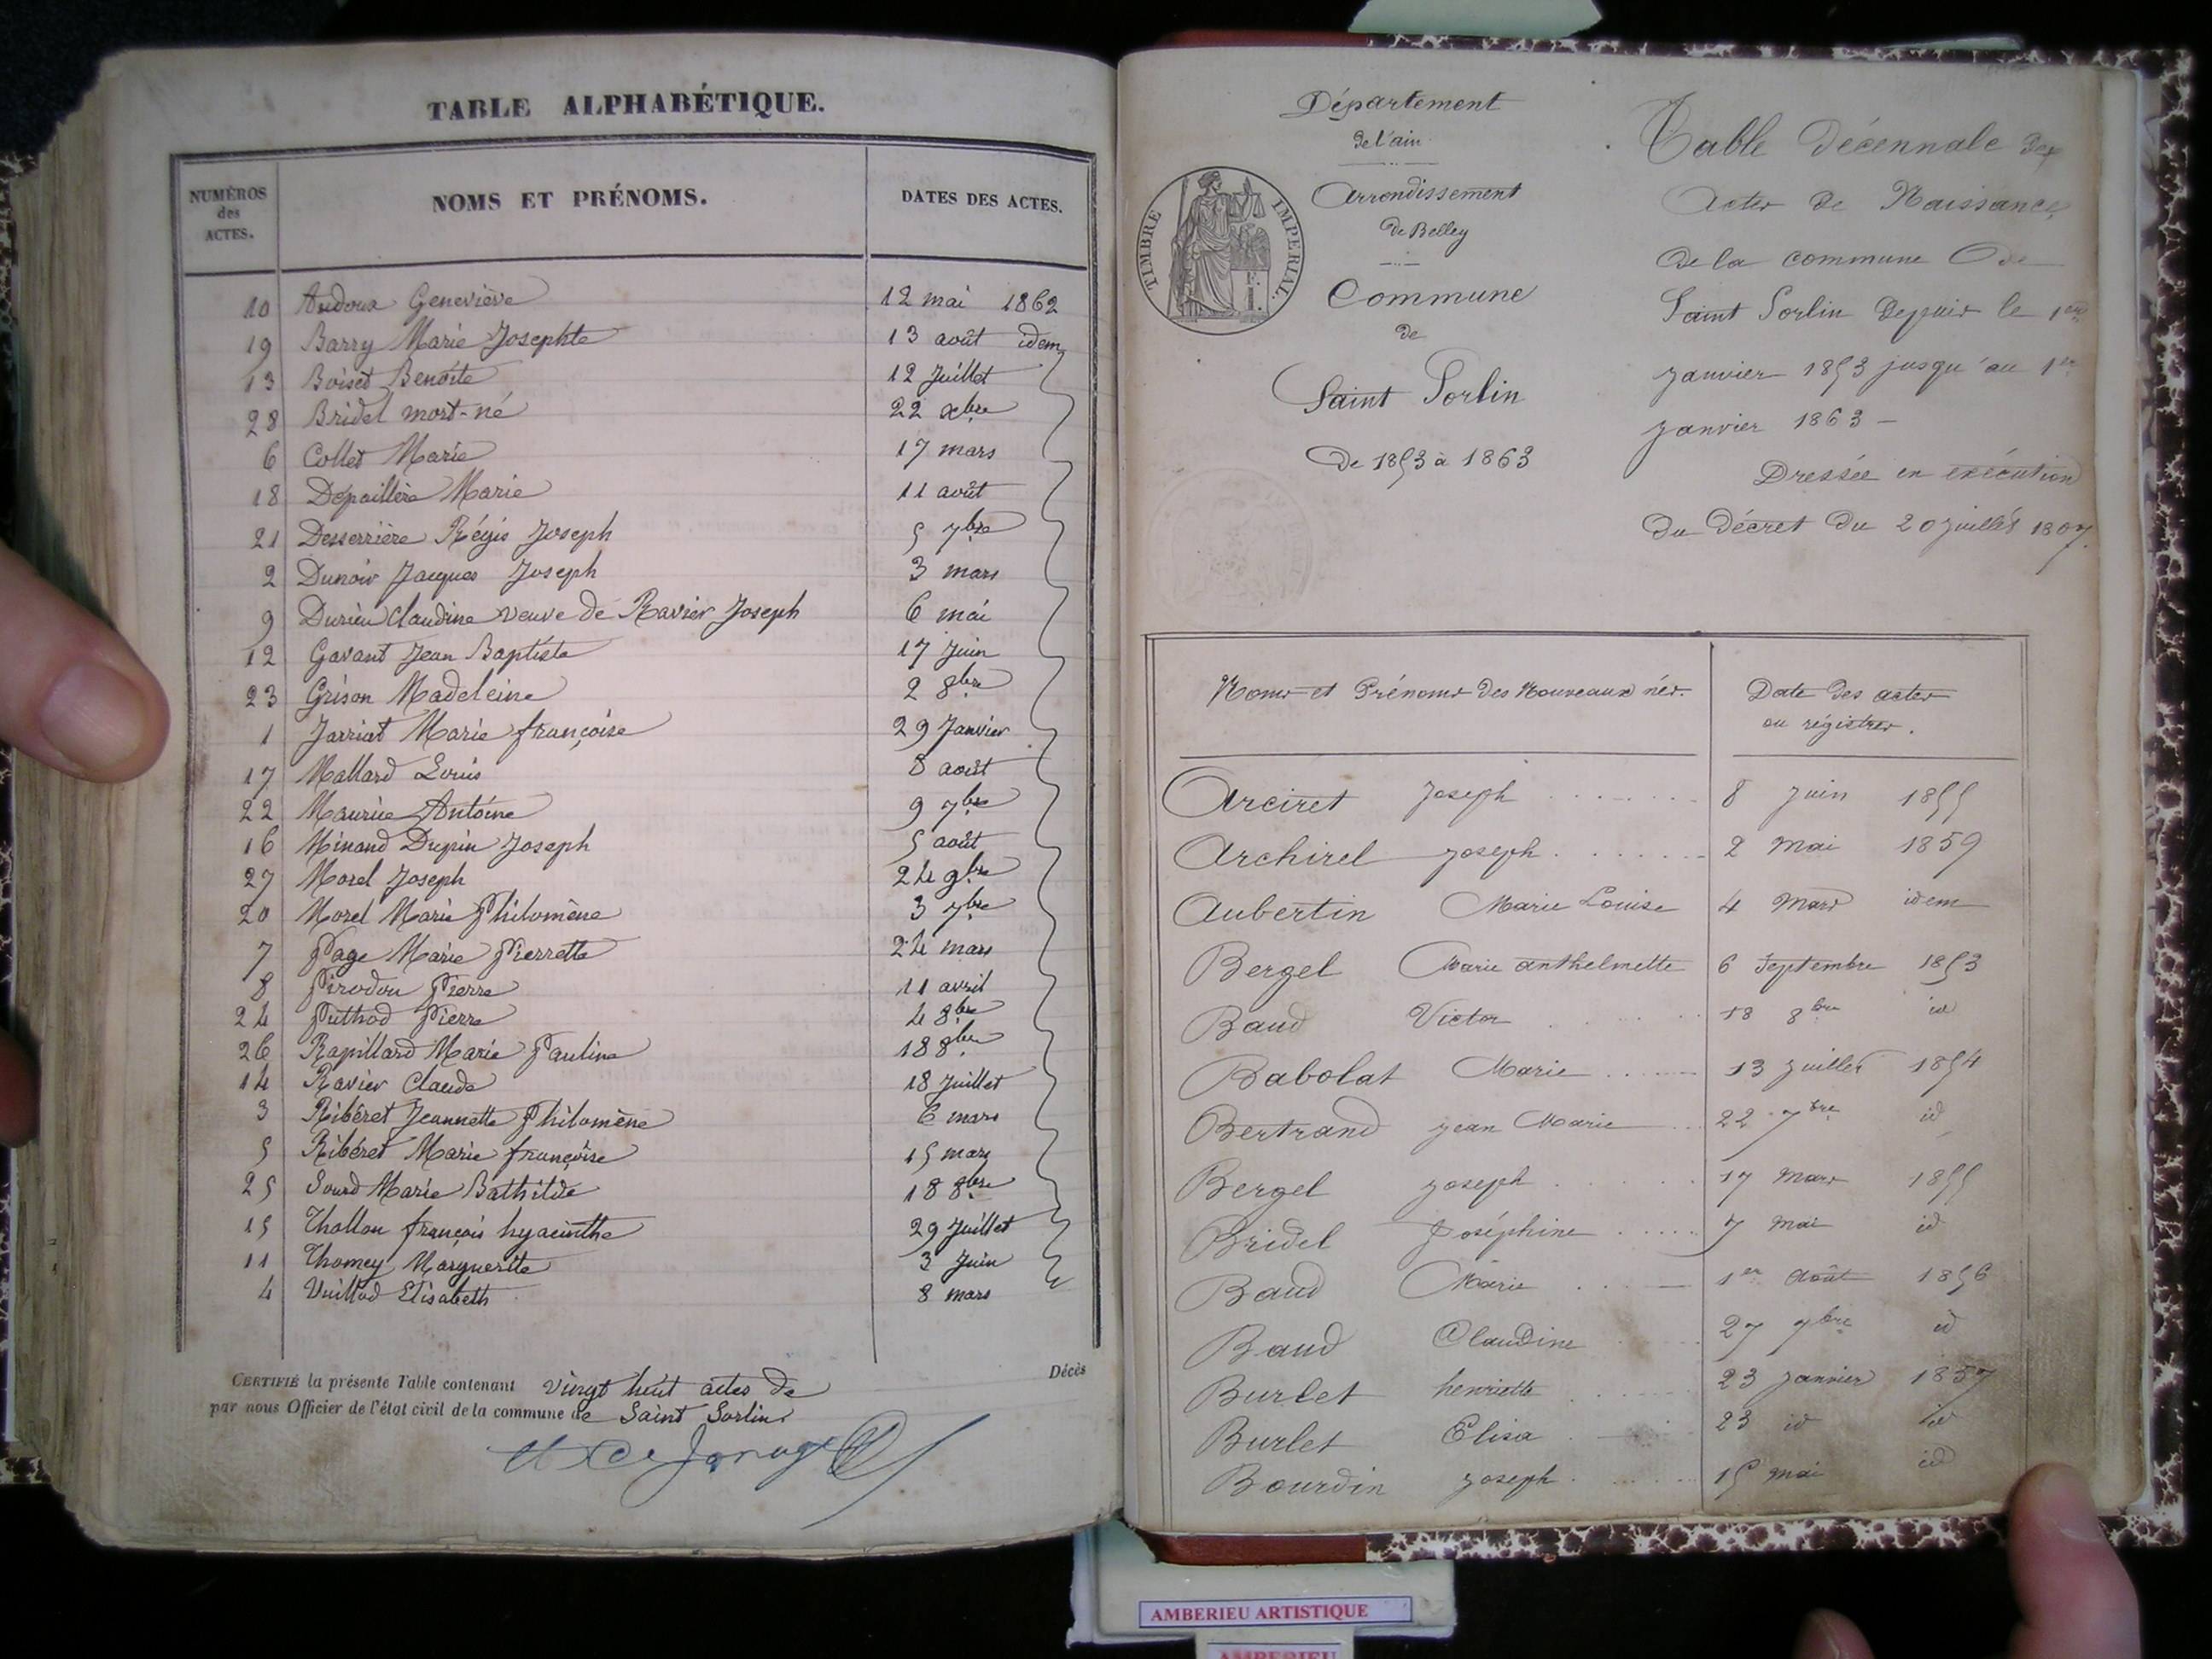 TABLE ALPHABÉTIQUE.
NUMÉROS des ACTES. NOMS ET PRÉNOMS. DATES DES ACTES.
10 Audoux Geneviève 12 mai 1862
19 Barry Marie Josephte 13 août idem
13 Boiset Benoîte 12 Juillet
28 Bridel mort-né 22 xbre
6 Collet Marie 17 mars
18 Depaillère Marie 11 août
21 Desserrière Régis Joseph 5 7bre
2 Dunoir Jacques Joseph 3 mars
9 Durieu Claudine veuve de Ravier Joseph 6 mai
12 Gavant Jean Baptiste 17 Juin
23 Grison Madeleine 2 8bre
1 Jarriat Marie françoise 29 Janvier
17 Mallard Louis 8 août
22 Maurice Antoine 9 7bre
16 Minand Dupin Joseph 5 août
27 Morel Joseph 24 9bre
20 Morel Marie Philomène 3 7bre
7 Page Marie Pierrette 24 mars
8 Pirodon Pierre 11 avril
24 Puthod Pierre 4 8bre
26 Rapillard Marie Pauline 18 8bre
14 Ravier Claude 18 Juillet
3 Ribéret Jeannette Philomène 6 mars
5 Ribéret Marie françoise 15 mars
25 Sourd Marie Bathilde 18 8bre
15 Thollon françois hyacinthe 29 Juillet
11 Thomey Marguerite 3 Juin
4 Vuillod Elisabeth 8 mars
Décès
CERTIFIÉ la présente Table contenant vingt huit actes de
par nous Officier de l'état civil de la commune de Saint Sorlin
Département
de l'ain
Arrondissement
de Belley
Commune
de
Saint Sorlin
De 1853 à 1863
TIMBRE IMPERIAL.
Table décennale des
Actes de Naissances
de la commune de
Saint Sorlin depuis le 1er
janvier 1853 jusqu'au 1er
janvier 1863 -
Dressée en exécution
du Décret du 20 juillet 1807.
Noms et Prénoms des Nouveaux nés. Date des actes
ou régistres.
Arciret Joseph 8 Juin 1855
Archirel Joseph 2 Mai 1859
Aubertin Marie Louise 4 Mars idem
Bergel Marie anthelmette 6 Septembre 1853
Baud Victor 18 8bre id
Babolat Marie 13 juillet 1854
Bertrand jean Marie 22 7bre id
Bergel joseph 17 Mars 1855
Bridel Joséphine 7 Mai id
Baud Marie 1er Août 1856
Baud Claudine 27 9bre id
Burlet henriette 23 janvier 1857
Burlet Elisa 23 id id
Bourdin joseph 15 Mai id
AMBERIEU ARTISTIQUE
AMBERIEU